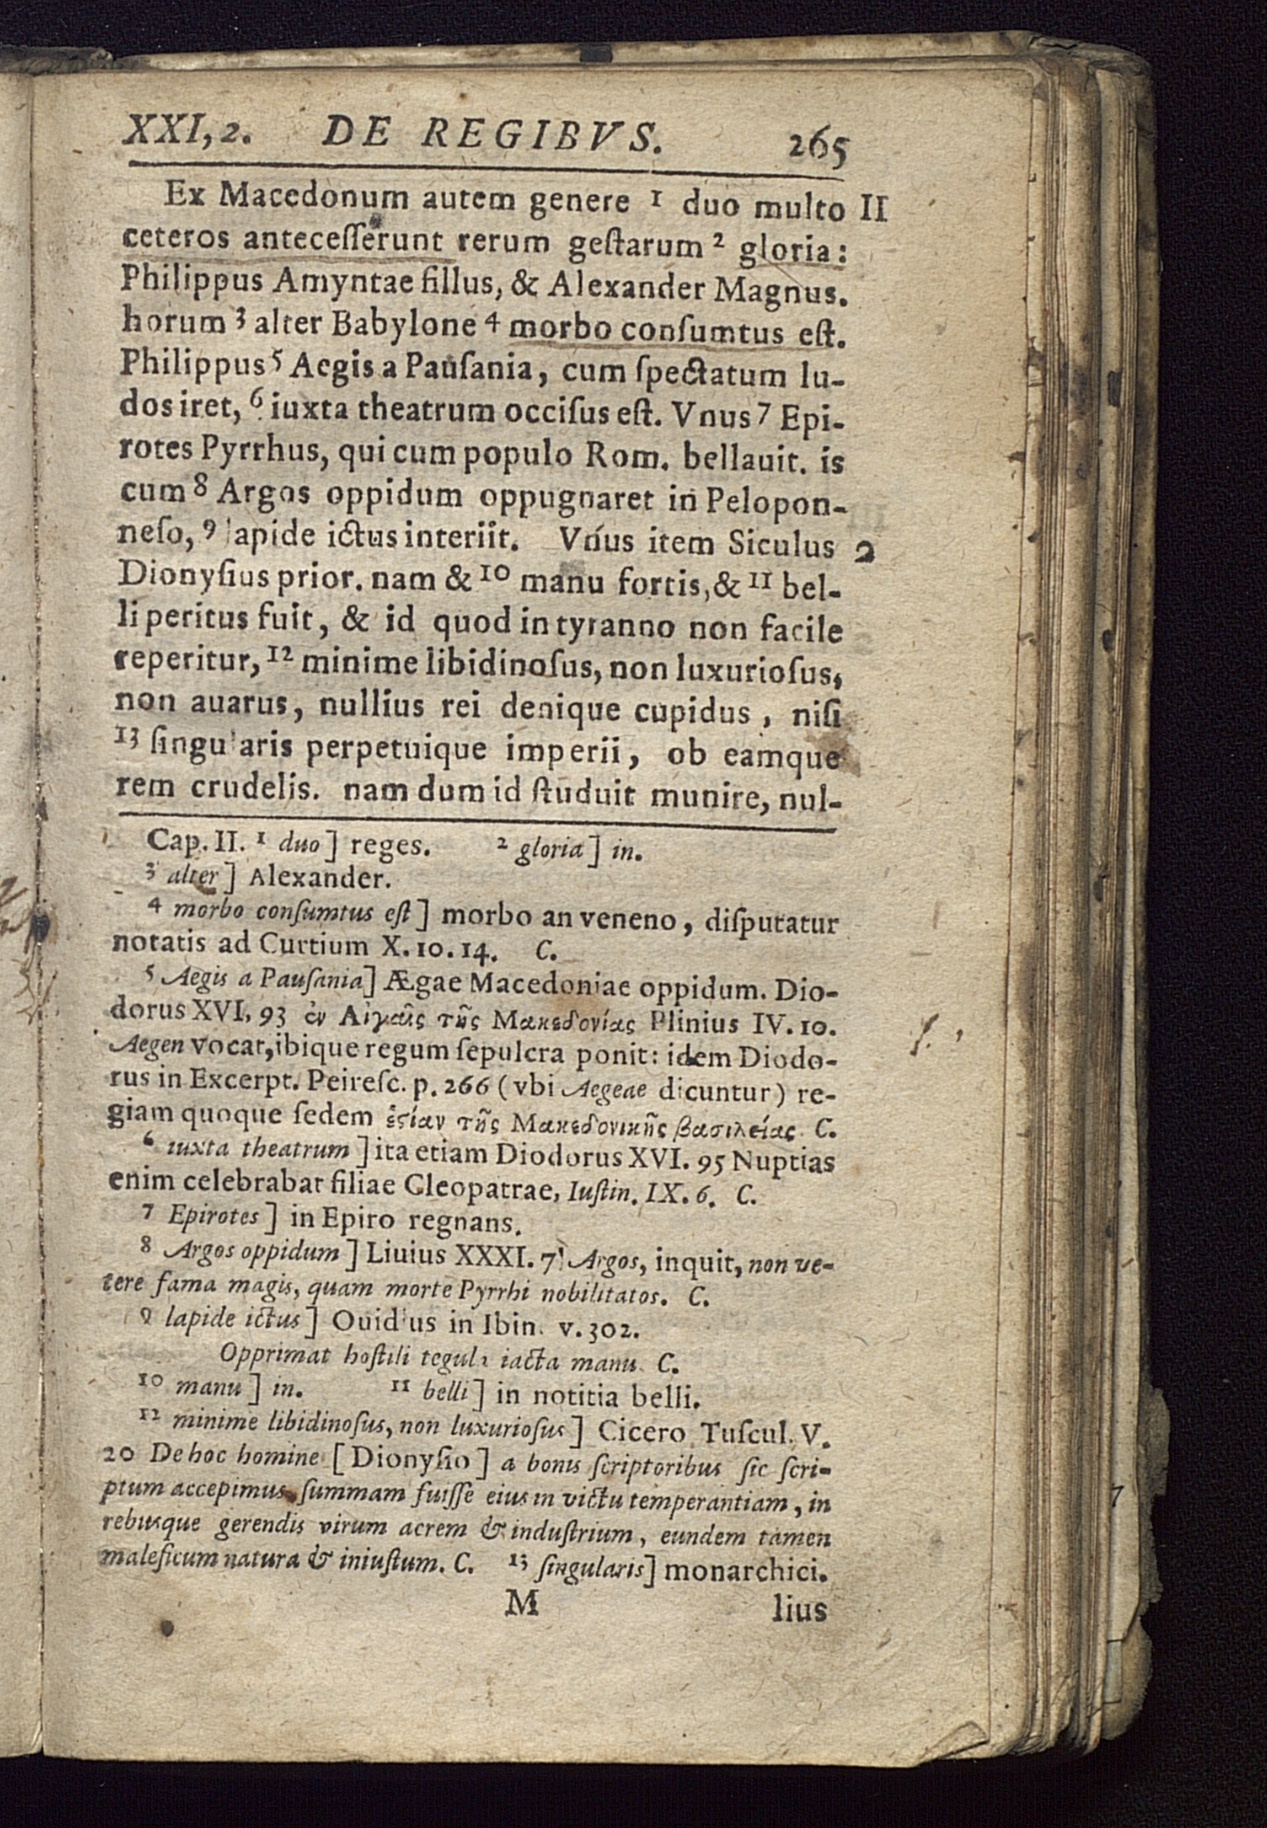 XXI, 2. DE REGIBVS. 265
Ex Macedonum autem genere 1 duo multo II
ceteros antecesſerunt rerum geſtarum 2 gloria:
Philippus Amyntae fillus, & Alexander Magnus.
horum 3 alter Babylone 4 morbo conſumtus eſt.
Philippus 5 Aegis a Pauſania, cum ſpectatum lu-
dos iret, 6 iuxta theatrum occiſus eſt. Vnus 7 Epi-
rotes Pyrrhus, qui cum populo Rom. bellauit. is
cum 8 Argos oppidum oppugnaret in Pelopon-
neſo, 9 lapide ictus interiit. Vnus item Siculus 2
Dionyſius prior. nam & 10 manu fortis, & 11 bel-
li peritus fuit, & id quod in tyranno non facile
reperitur, 12 minime libidinoſus, non luxurioſus,
non auarus, nullius rei denique cupidus, niſi
13 ſingularis perpetuique imperii, ob eamque
rem crudelis. nam dum id ſtuduit munire, nul-
Cap. II. 1 duo] reges. 2 gloria] in.
3 alter] Alexander.
4 morbo conſumtus eſt] morbo an veneno, diſputatur
notatis ad Curtium X. 10. 14. C.
5 Aegis a Pauſania] Ægae Macedoniae oppidum. Dio-
dorus XVI, 93 ἐν Αἰγαῖς τῆς Μακεδονίας Plinius IV. 10.
Aegen vocat, ibique regum ſepulcra ponit: idem Diodo-
rus in Excerpt. Peireſc. p. 266 (vbi Aegeae dicuntur) re-
giam quoque ſedem ἑϛίαν τῆς Μακεδονικῆς βασιλείας. C.
6 iuxta theatrum] ita etiam Diodorus XVI. 95 Nuptias
enim celebrabat filiae Cleopatrae, Iuſtin. IX. 6. C.
7 Epirotes] in Epiro regnans.
8 Argos oppidum] Liuius XXXI. 7! Argos, inquit, non ve-
tere fama magis, quam morte Pyrrhi nobilitatos. C.
9 lapide ictus] Ouidius in Ibin. v. 302.
Opprimat hoſtili tegula iacta manu. C.
10 manu] in. 11 belli] in notitia belli.
12 minime libidinoſus, non luxurioſus] Cicero Tuſcul. V.
20 De hoc homine [Dionyſio] a bonis ſcriptoribus ſic ſcri-
ptum accepimus, ſummam fuiſſe eius in victu temperantiam, in
rebusque gerendis virum acrem & induſtrium, eundem tamen
maleficum natura & iniuſtum. C. 13 ſingularis] monarchici.
M lius